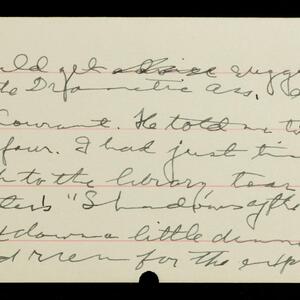 uld get sugge
te Dramatic Ass.
Courant. He told me to
four. I had just tim
k to the library, tear
ter's "Shadows of the
t down a little dinne
d men for the exp